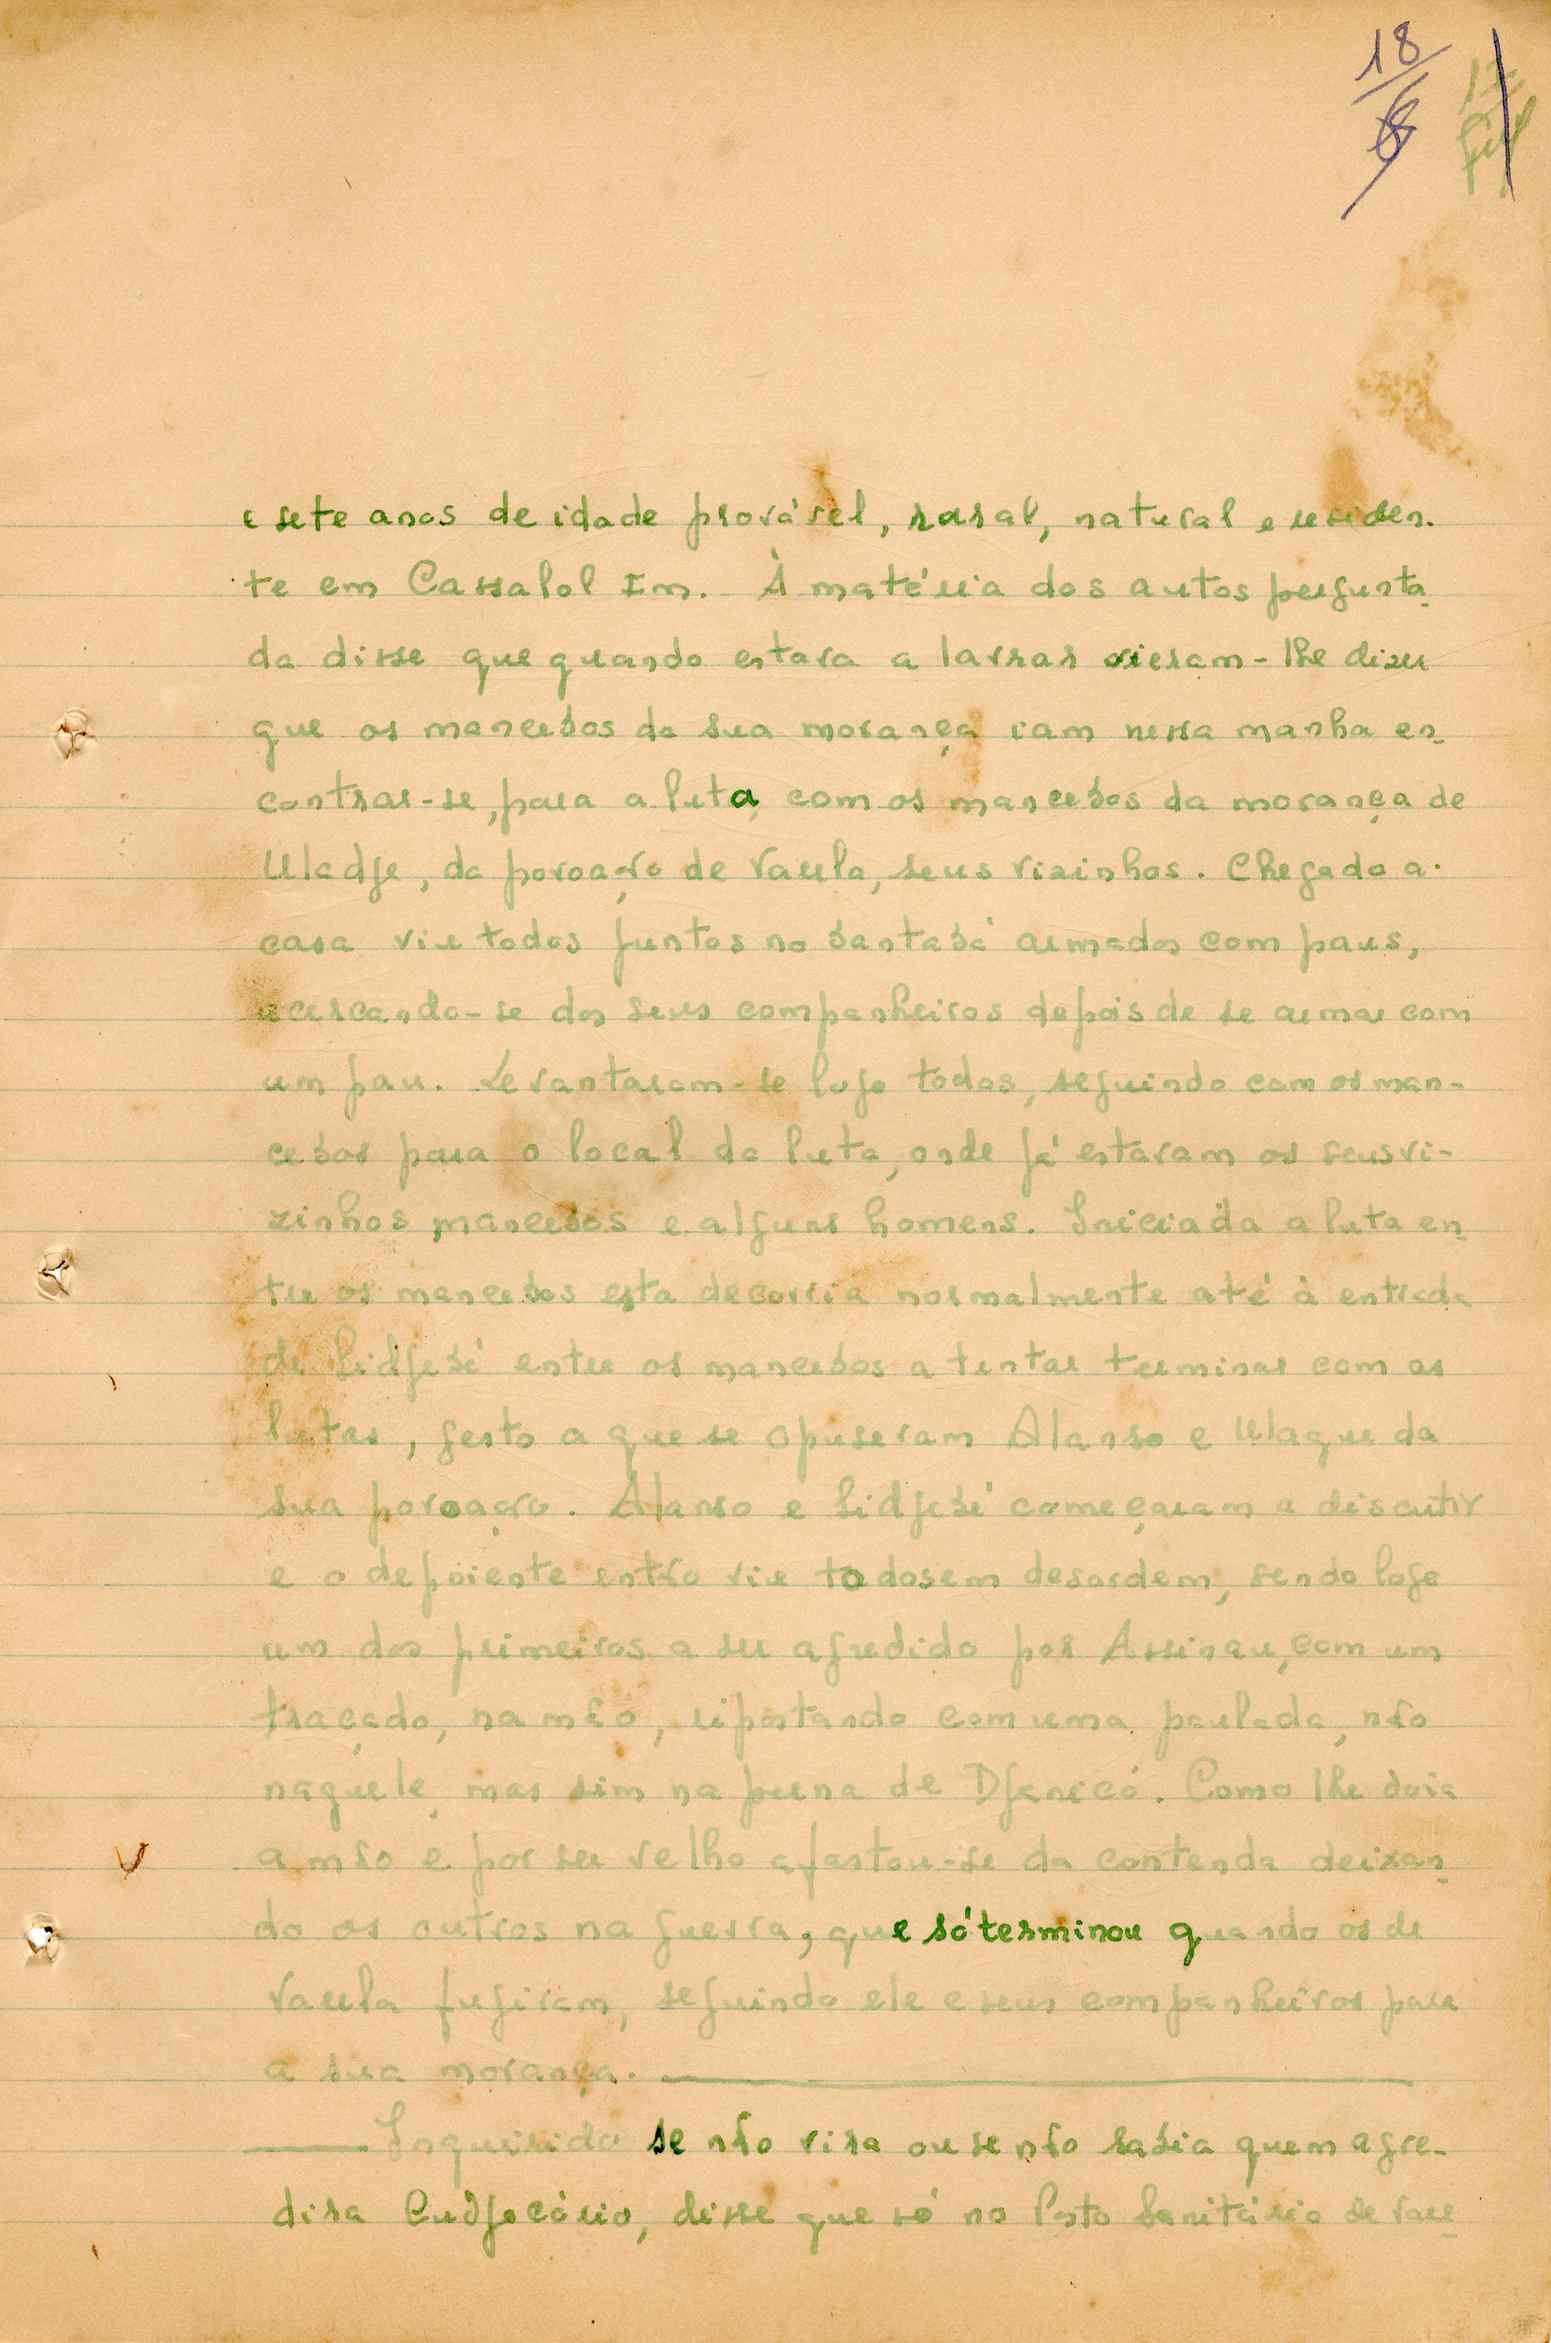 18
e sete anos de idade provável, rural, natural e residen-
te em Cassalol Im. À matéria dos autos pergunta-
da disse que quando estava a lavrar vieram-lhe dizer
que os mancebos da sua morança iam nessa manhã en-
contrar-se, para a luta, com os mancebos da morança de
Uladje, da povoação de Varela, seus vizinhos. Chegado a
casa viu todos juntos no bantabá armados com paus,
acercando-se dos seus companheiros depois de se armar com
um pau. Levantaram-se logo todos, seguindo com os man-
cebos para o local da luta, onde já estavam os seus vi-
zinhos, mancebos e alguns homens. Iniciada a luta en-
tre os mancebos esta decorria normalmente até à entrada
de Lidjebé entre os mancebos a tentar terminar com as
lutas, gesto a que se opuseram Alanso e Ulaque da
sua povoação. Alanso e Lidjebé começaram a discutir
e o depoiente então viu todos em desordem, sendo logo
um dos primeiros a ser agredido por Assinau, com um
traçado, na mão, ripostando com uma paulada, não
naquele, mas sim na perna de Djanecó. Como lhe doia
a mão e por ser velho afastou-se da contenda deixan-
do os outros na guerra, que só terminou quando os de
Varela fugiram, seguindo ele e seus companheiros para
a sua morança.
Inquirido se não vira ou se não sabia quem agre-
dira Cudjocório, disse que só no Posto Sanitário de Vare-